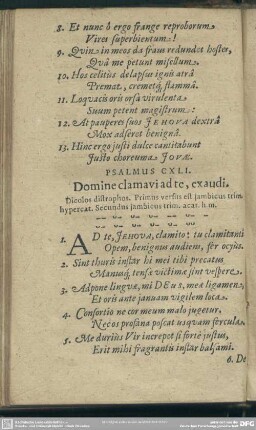 8. Et nunc ò ergo frange reproborum
Vires superbientum!
9. Quin in meos da fraus redundet hostes,
Quâ me petunt misellum.
10. Hos cœlitus delapsus ignis atrâ
Premat, cremetq́; flammâ.
11. Loquacis oris orsa virulenta
Suum petent magistrum:
12. At pauperes suos JEHOVA dextrâ
Mox adseret benignâ.
13. Hinc ergo justi dulcè cantitabunt
Justo choreuma JOVÆ.
PSALMUS CXLI.
Domine clamavi ad te, exaudi.
Dicolos distrophos. Primus versus est jambicus trim.
hypercat. Secundus jambicus trim. acat. h. m.
1. AD te, JEHOVA, clamito: tu clamitanti
Opem, benignus audiens, fer ocyùs.
2. Sint thuris instar hi mei tibi precatus
Manusq́; tensæ victimæ sint vesperæ.
3. Adpone linguæ, mi DEus, meæ ligamen,
Et oris ante januam vigilem loca.
4. Consortio ne cor meum malo jugetur,
Nec os profana poscat usquam fercula.
5. Me durius Vir increpet si fortè justus,
Erit mihi fragrantis instar balsami.
6. De